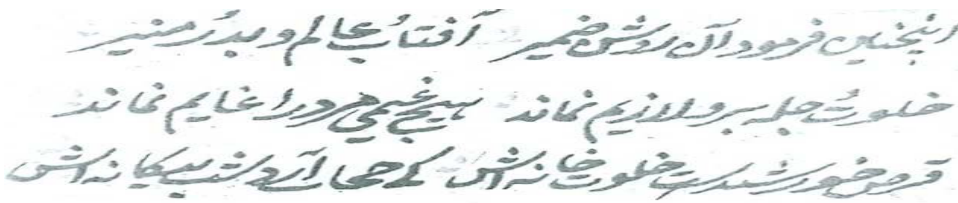 اینچنین فرمود آن روشن ضمیر آفتاب عالم و بدر منیر
خلوت چله برو لازیم نماند هیچ غیمی مرورا غایم نماند
قرص خورشیدست خلوت خانه اش کی حجاب آرد شب بیکانه اش